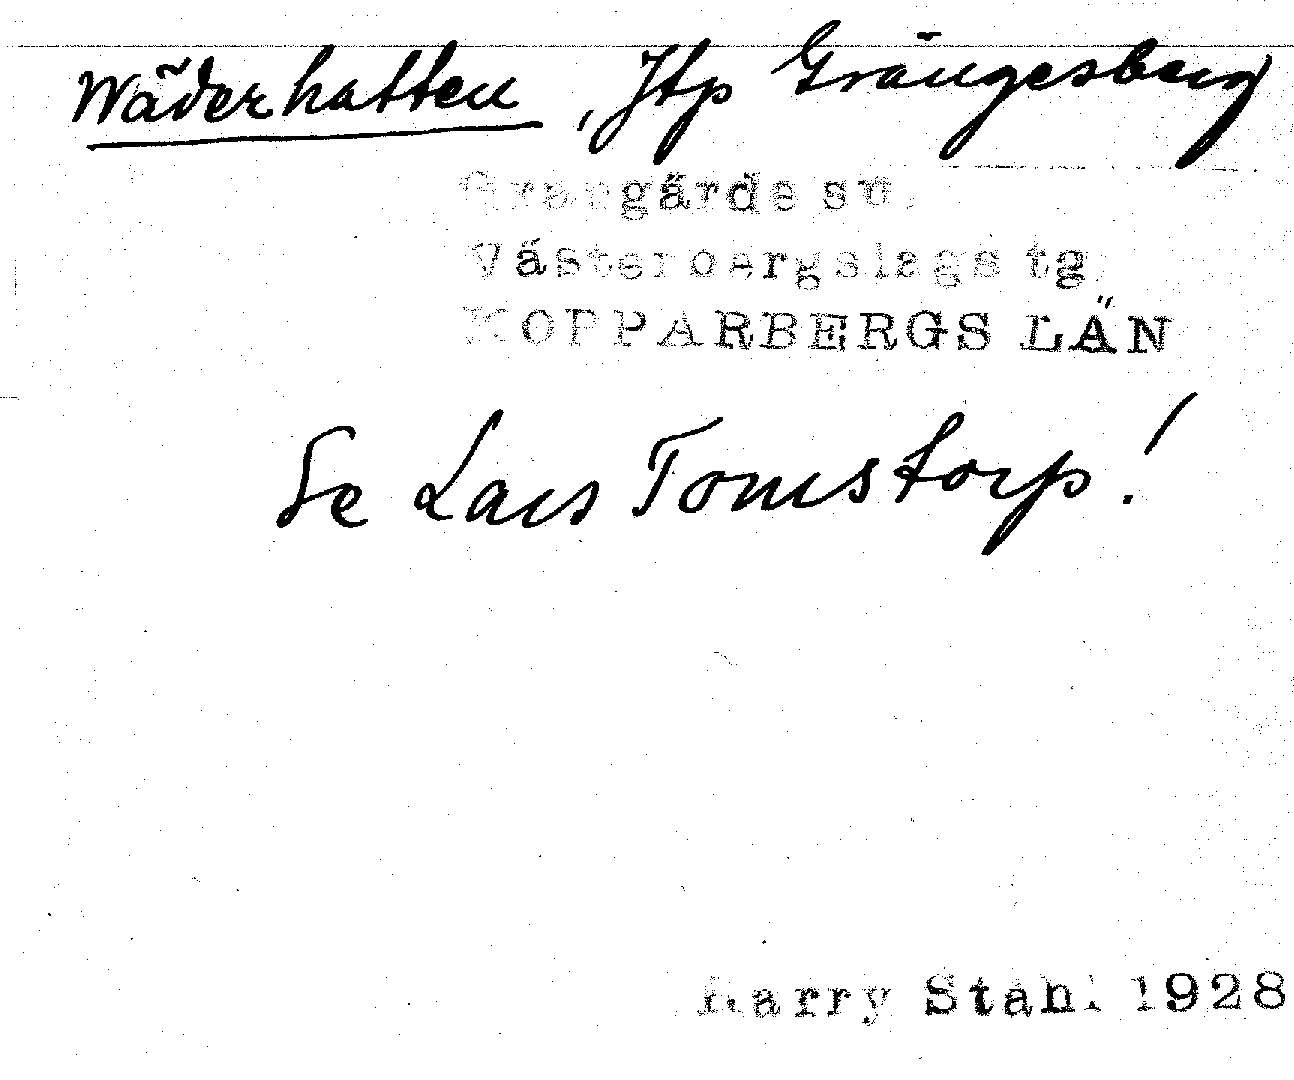 Wäderhatten, Jtp Grängesberg
Grangärde sn.
Västerbergslags tg.
KOPPARBERGS LÄN
Se Lars Tomstorp!
Harry Ståhl 1928